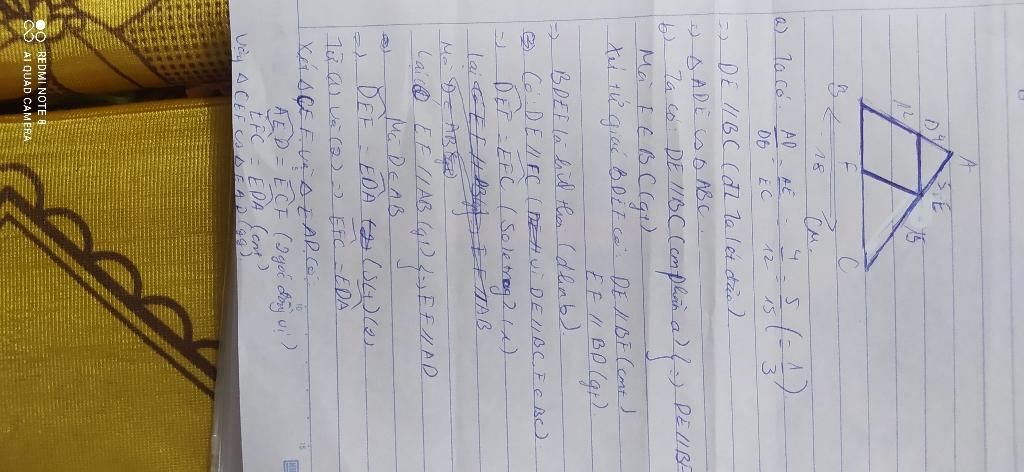 A
D 4
5 E
12
15
B F C
18 cm
a) Ta có AD/DB = AE/EC = 4/12 = 5/15 (= 1/3)
=> DE // BC (đl Ta lét đảo)
=> ∆ ADE ∽ ∆ ABC.
b) Ta có: DE // BC (cm phần a) } => DE // BF
Mà F ∈ BC (gt)
Xét tứ giác BDEF có: DE // BF (cmt)
EF // BD (gt)
=> BDEF là hình (dhnb).
Có: DE // FC (vì DE // BC, F ∈ BC)
=> DEF = EFC (So le trong) (1)
EF // AB
Mà D ∈ AB
Lại có EF // AB (gt) } => EF // AD
Mà D ∈ AB
=> DEF = EDA (SLT) (2)
Từ (1) và (2) => EFC = EDA
Xét ∆ CEF và ∆ EAD có:
AED = ECF (2 góc đồng vị)
EFC = EDA (cmt)
Vậy ∆ CEF ∽ ∆ EAD (gg)
REDMI NOTE 8
AI QUAD CAMERA